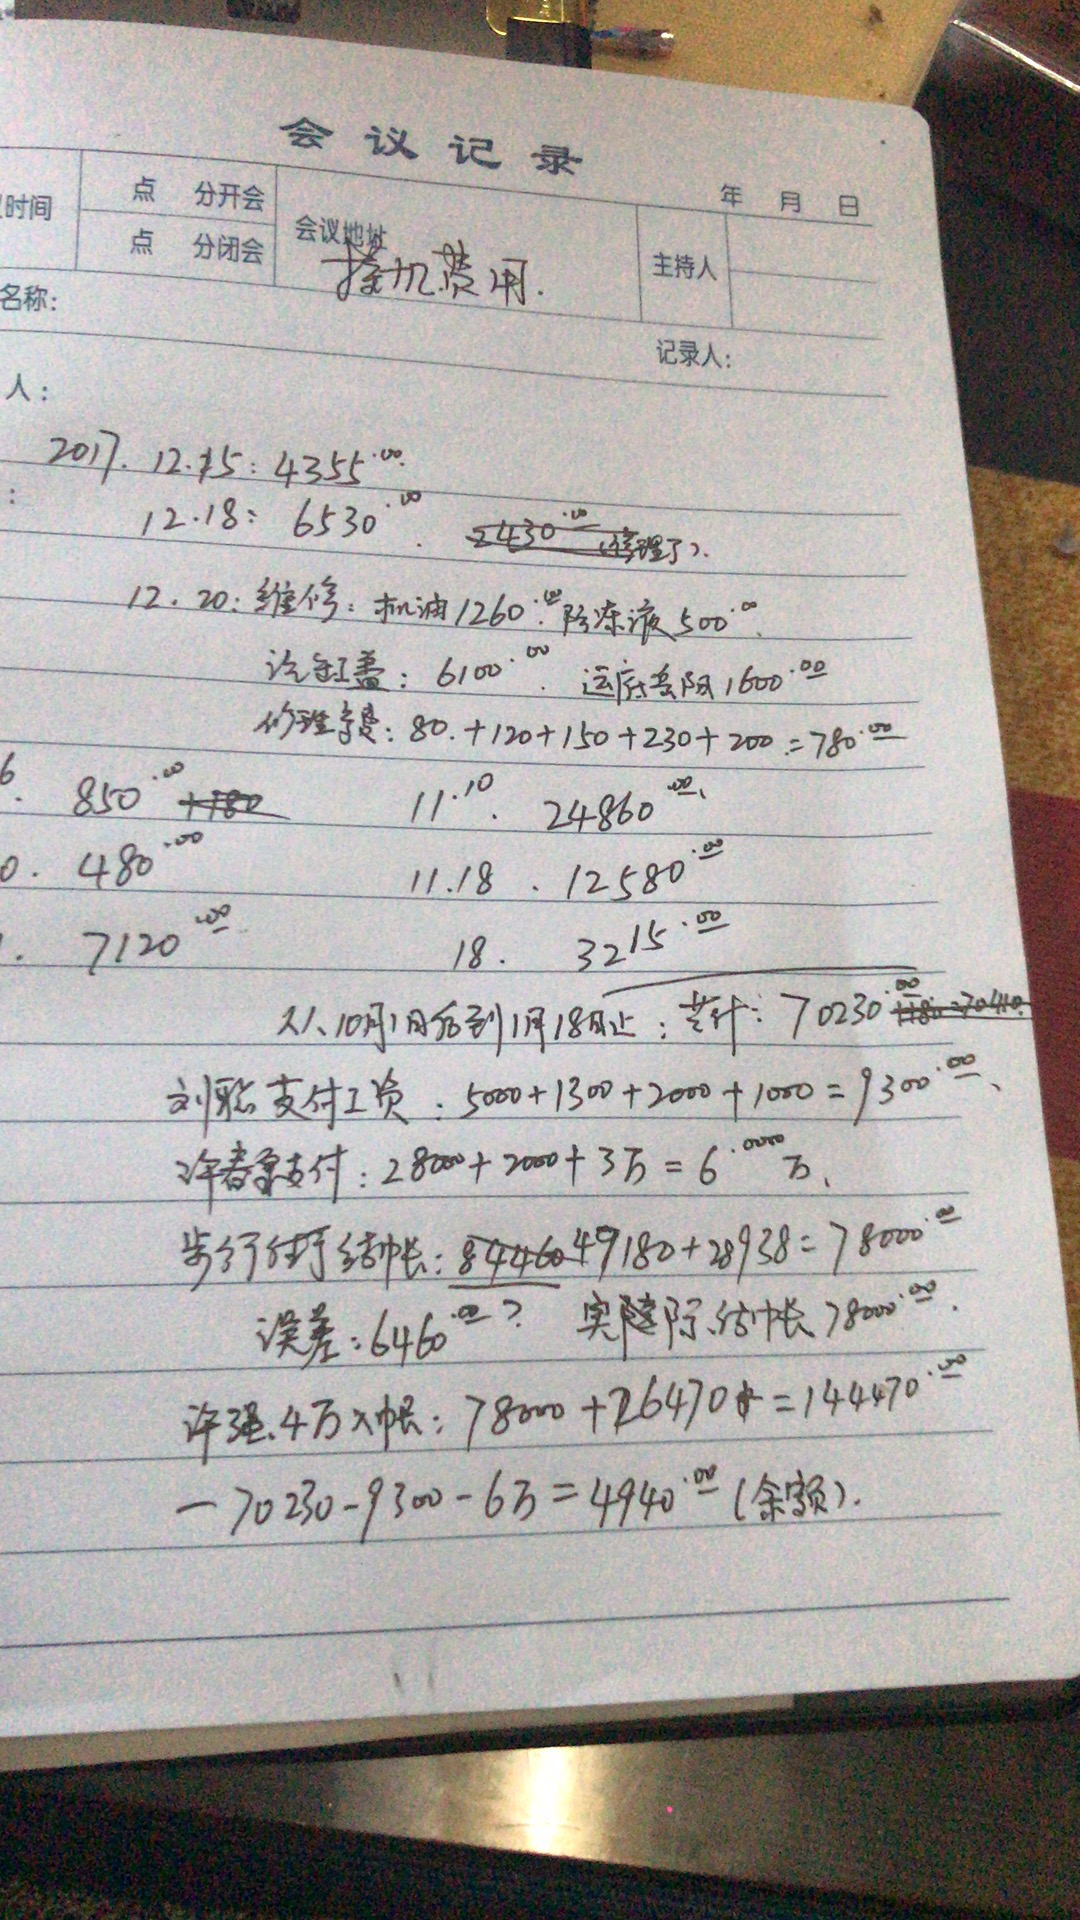 会议记录
年 月 日
时间 点 分开会 会议地址 主持人
点 分闭会
挖机费用.
名称:
记录人:
人:
2017. 12.15: 4355.00
:
12.18: 6530.00 2430.00 (修理了).
12.20: 维修: 机油1260.00 防冻液500.00.
汽缸盖: 6100.00. 运店岳阳1600.00
修理费: 80.+120+150+230+200=780.00
6. 850.00 +180 11.10. 24860.00.
0. 480.00 11.18. 12580.00
. 7120.00 18. 3215.00
从10月1日后到1月18日止: 共计: 70230.00 +180=70410.
刘聪支付工资: 5000+1300+2000+1000=9300.00、
许春支付: 28000+2000+3万=6.0000万、
步行街结帐: 84460 49180+28938=78000.00
误差: 6460.00? 实际结帐78000.00.
许强.4万入帐: 78000+26470+=144470.00
-70230-9300-6万=4940.00(余额).